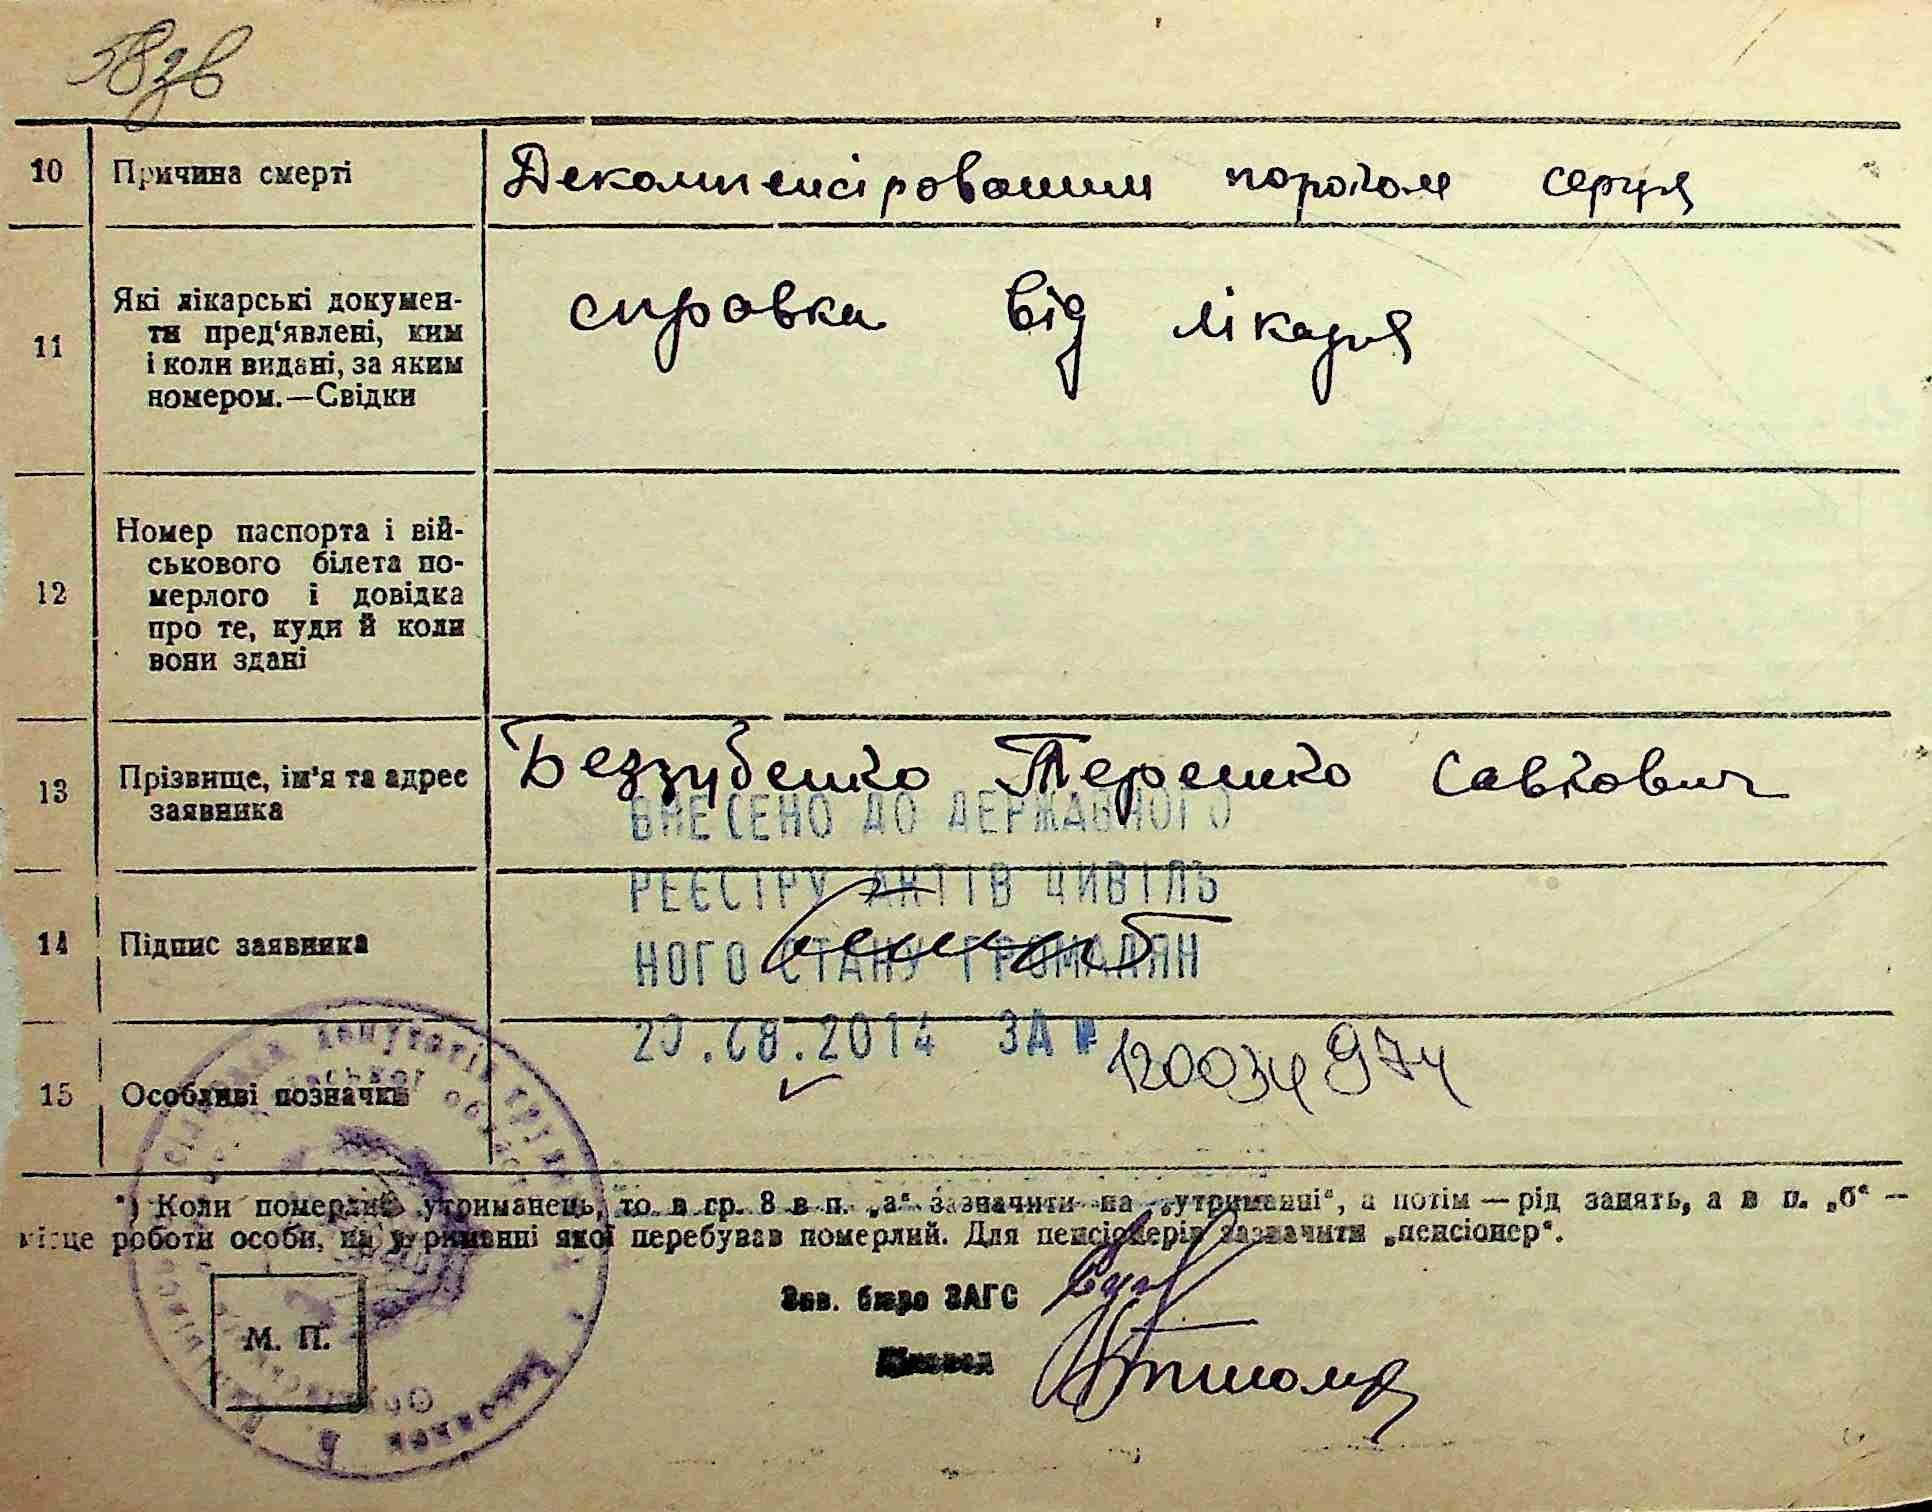 58зв
10 Причина смерті Декомпенсірованим пороком серця
11 Які лікарські докумен-
ти пред'явлені, ким
і коли видані, за яким
номером.—Свідки
справка від лікаря
12 Номер паспорта і вій-
ськового білета по-
мерлого і довідка
про те, куди й коли
вони здані
13 Прізвище, ім'я та адрес
заявника
Беззубенко Терешко Савкович
ВНЕСЕНО ДО ДЕРЖАВНОГО
РЕЄСТРУ АКТІВ ЦИВІЛЬ
14 Підпис заявника
НОГО СТАНУ ГРОМАДЯН
.08.2014 ЗА №
15 Особливі позначки
*) Коли померлий утриманець, то в гр. 8 в п. „а“ зазначити на „утриманні“, а потім — рід занять, а в п. „б“ —
місце роботи особи, на утриманні якої перебував померлий. Для пенсіонерів зазначити „пенсіонер“.
Зав. бюро ЗАГС
М. П.